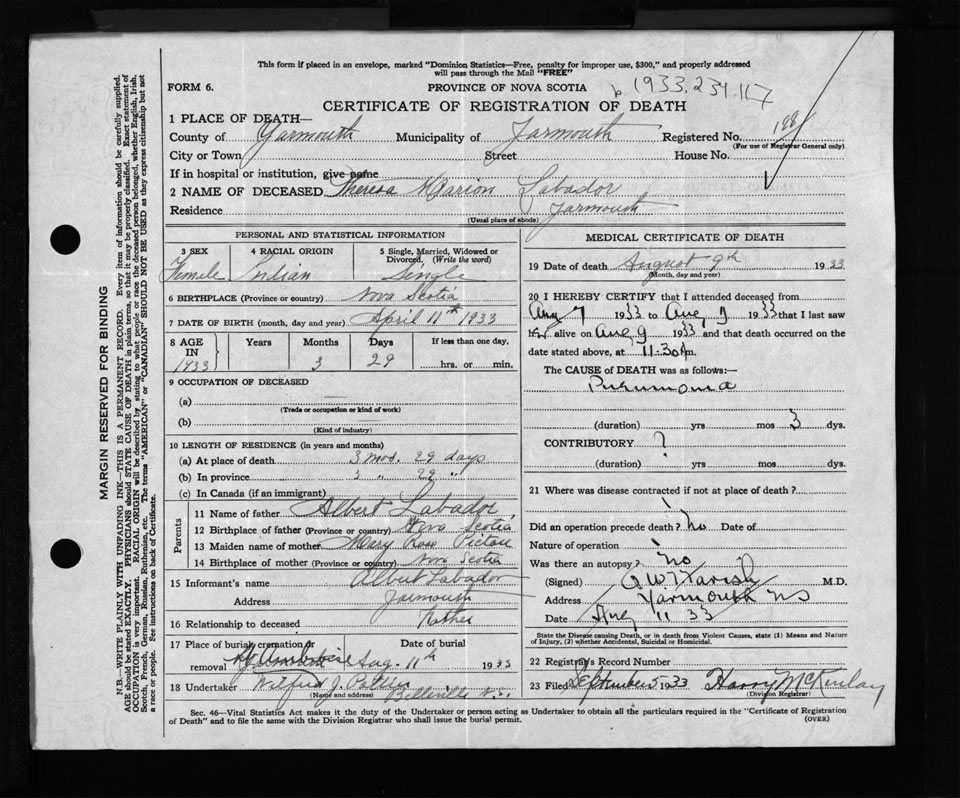 This form if placed in an envelope, marked "Dominion Statistics—Free, penalty for improper use, $300," and properly addressed
will pass through the Mail "FREE"
FORM 6.
PROVINCE OF NOVA SCOTIA
1933.231.117
CERTIFICATE OF REGISTRATION OF DEATH
1 PLACE OF DEATH—
County of Yarmouth Municipality of Yarmouth Registered No. 188
(For use of Registrar General only)
City or Town Street House No.
If in hospital or institution, give name
2 NAME OF DECEASED Theresa Marion Labador
Residence Yarmouth
(Usual place of abode)
PERSONAL AND STATISTICAL INFORMATION
3 SEX 4 RACIAL ORIGIN 5 Single, Married, Widowed or
Divorced. (Write the word)
Female Indian Single
6 BIRTHPLACE (Province or country) Nova Scotia
7 DATE OF BIRTH (month, day and year) April 11th 1933
8 AGE Years Months Days If less than one day,
IN
1933 3 29 hrs. or min.
9 OCCUPATION OF DECEASED
(a)
(Trade or occupation or kind of work)
(b)
(Kind of industry)
10 LENGTH OF RESIDENCE (in years and months)
(a) At place of death 3 mos. 29 days
(b) In province 3 " 29 "
(c) In Canada (if an immigrant)
Parents
11 Name of father Albert Labador
12 Birthplace of father (Province or country) Nova Scotia
13 Maiden name of mother Mary Rose Pictou
14 Birthplace of mother (Province or country) Nova Scotia
15 Informant's name Albert Labador
Address Yarmouth
16 Relationship to deceased Father
17 Place of burial cremation or Date of burial
removal Aug. 11th 1933
18 Undertaker Wilfred J.
(Name and address) Belleville N.S.
MEDICAL CERTIFICATE OF DEATH
19 Date of death August 9th 1933
(Month, day and year)
20 I HEREBY CERTIFY that I attended deceased from
Aug 7 1933 to Aug 9 1933 that I last saw
her alive on Aug 9 1933 and that death occurred on
date stated above, at 11.30 m.
The CAUSE of DEATH was as follows:—
Pneumonia
(duration) yrs mos 3 dys.
CONTRIBUTORY ?
(duration) yrs mos dys.
21 Where was disease contracted if not at place of death?
Did an operation precede death? No Date of
Nature of operation
Was there an autopsy? No
(Signed) M.D.
Address Yarmouth NS
Date Aug 11 33
State the Disease causing Death, or in death from Violent Causes, state (1) Means and Nature
of Injury, (2) whether Accidental, Suicidal or Homicidal.
22 Registrar's Record Number
23 Filed September 5 1933 Harry McKinlay
(Division Registrar)
Sec. 46—Vital Statistics Act makes it the duty of the Undertaker or person acting as Undertaker to obtain all the particulars required in the "Certificate of Registration
of Death" and to file the same with the Division Registrar who shall issue the burial permit.
(OVER)
MARGIN RESERVED FOR BINDING
N.B.—WRITE PLAINLY WITH UNFADING INK—THIS IS A PERMANENT RECORD. Every item of information should be carefully supplied.
AGE should be stated EXACTLY. PHYSICIANS should STATE CAUSE OF DEATH in plain terms, so that it may be properly classified. Exact statement of
OCCUPATION is very important. RACIAL ORIGIN will be described by stating to what people or race the deceased person belonged, whether English, Irish,
Scotch, French, German, Russian, Ruthenian, etc. The terms "AMERICAN" or "CANADIAN" SHOULD NOT BE USED as they express citizenship but not
a race or people. See instructions on back of Certificate.